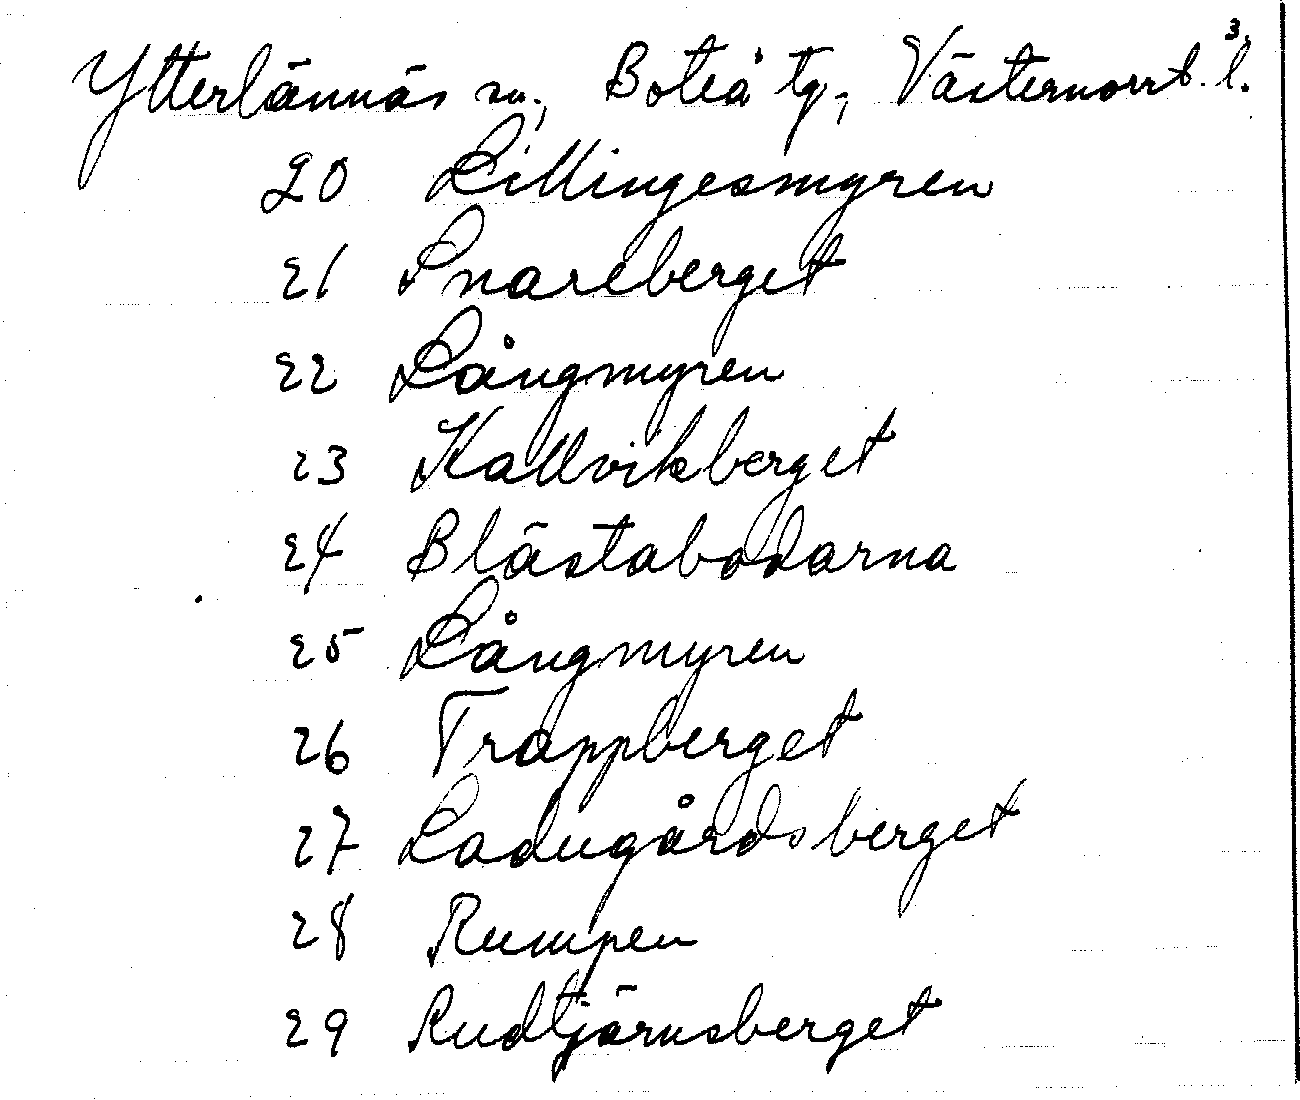 3.
Ytterlännäs sn., Boteå tg., Västernorrl. l.
20 Lillingesmyren
21 Snareberget
22 Långmyren
23 Kallvikberget
24 Blästabodarna
25 Långmyren
26 Trappberget
27 Ladugårdsberget
28 Rumpen
29 Rudtjärnsberget